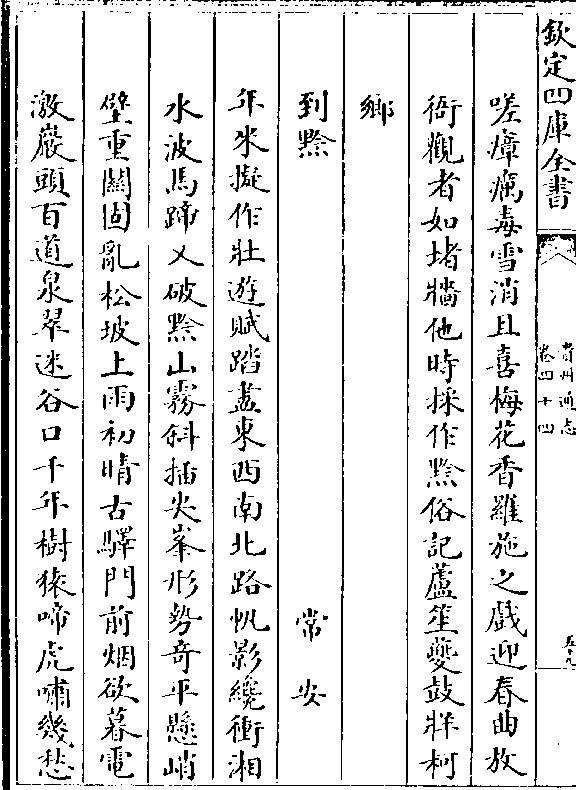 欽定四庫全書
貴州通志
卷四十四
五十九
嗟瘴癘毒雪消且喜梅花香羅施之戲迎春曲放
衙觀者如堵牆他時採作黔俗記蘆笙夔鼓牂柯
鄉
到黔
常安
年來擬作壯遊賦踏盡東西南北路帆影纔衝湘
水波馬蹄又破黔山霧斜插尖峯形勢奇平懸峭
壁重關固亂松坡上雨初晴古驛門前烟欲暮電
激巖頭百道泉翠迷谷口千年樹猿啼虎嘯幾愁